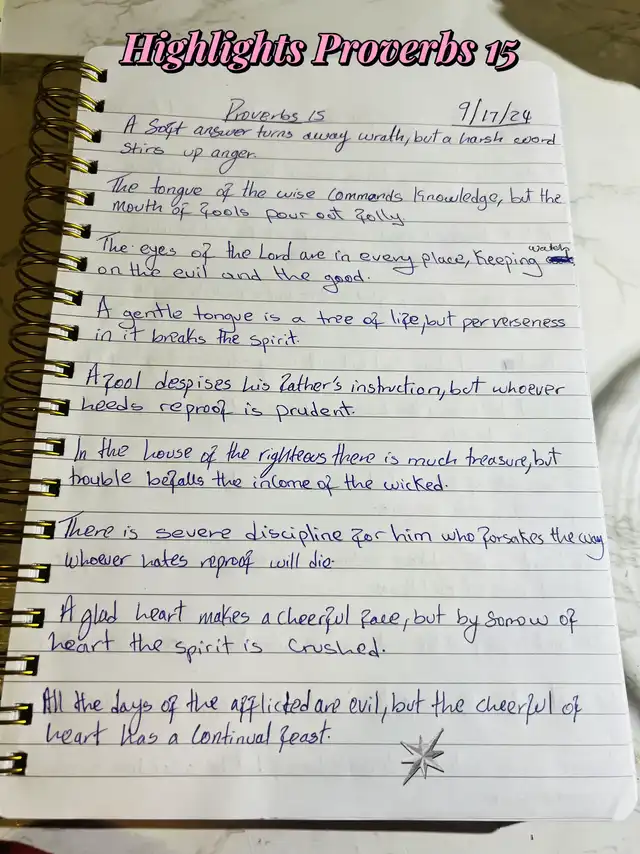 Highlights Proverbs 15
Proverbs 15 9/17/24
A Soft answer turns away wrath, but a harsh word
stirs up anger.
The tongue of the wise commands knowledge, but the
mouth of fools pour out folly.
The eyes of the Lord are in every place, keeping watch
on the evil and the good.
A gentle tongue is a tree of life, but perverseness
in it breaks the spirit.
A fool despises his father's instruction, but whoever
heeds reproof is prudent.
In the house of the righteous there is much treasure, but
trouble befalls the income of the wicked.
There is severe discipline for him who forsakes the way
whoever hates reproof will die.
A glad heart makes a cheerful face, but by sorrow of
heart the spirit is crushed.
All the days of the afflicted are evil, but the cheerful of
heart has a continual feast.